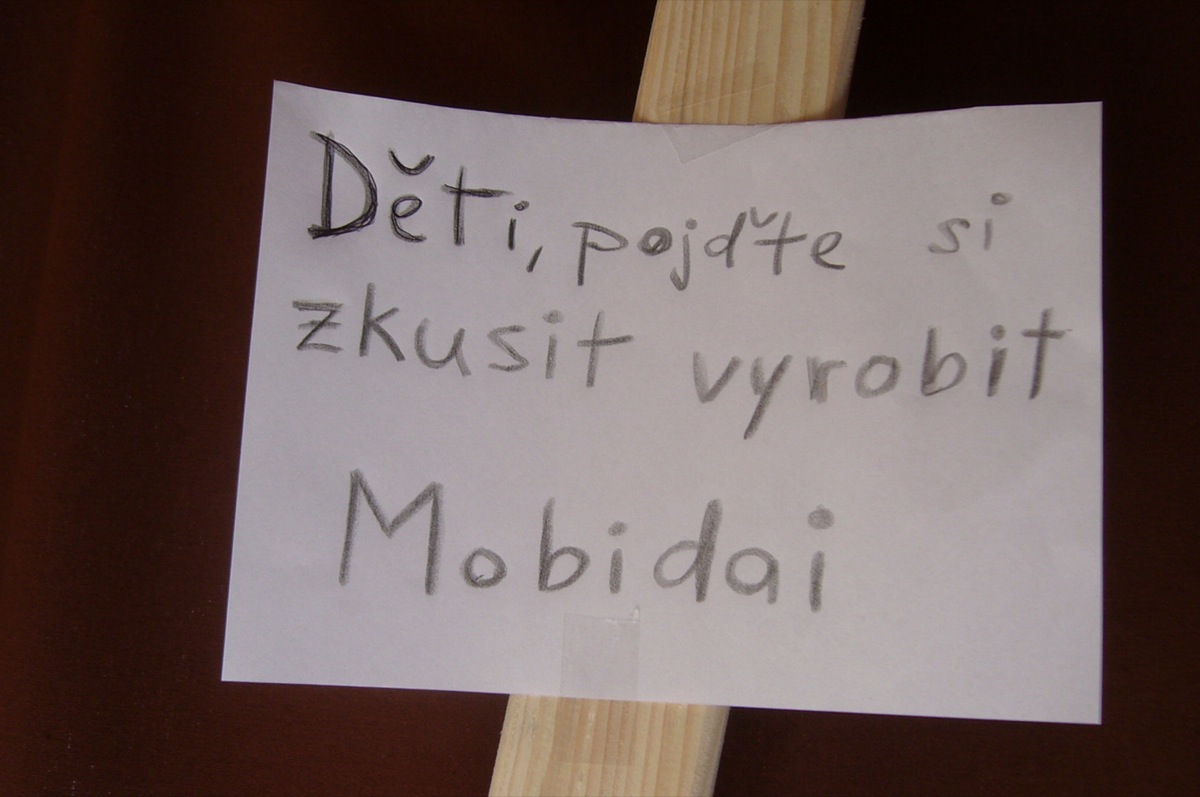 Děti, pojďte si
zkusit vyrobit
Mobidai